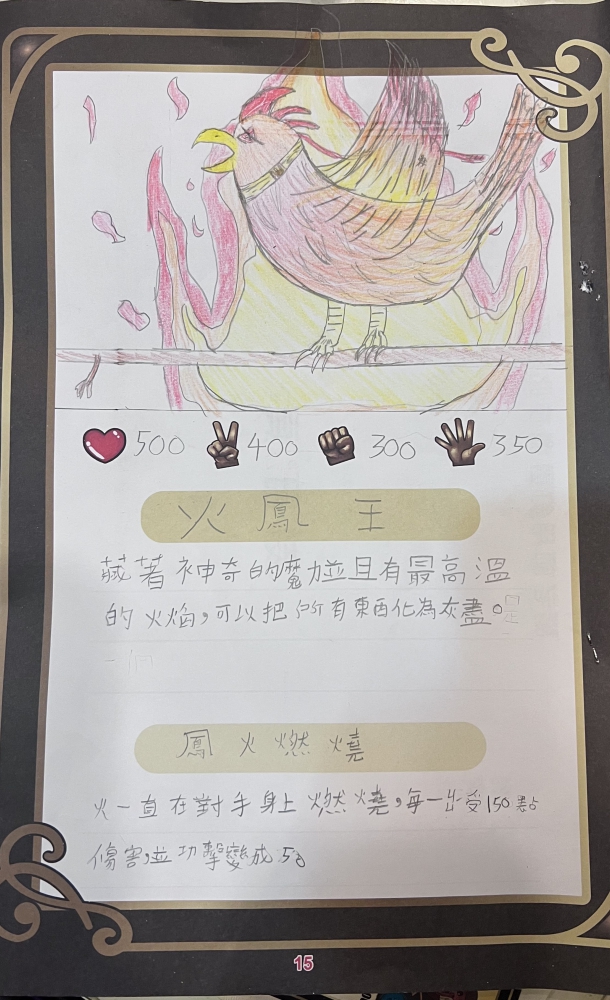 500 400 300 350
火鳳王
藏著神奇的魔力並且有最高溫
的火焰,可以把所有東西化為灰盡。
鳳火燃燒
火一直在對手身上燃燒,每一出受150點
傷害,並功擊變成50
15